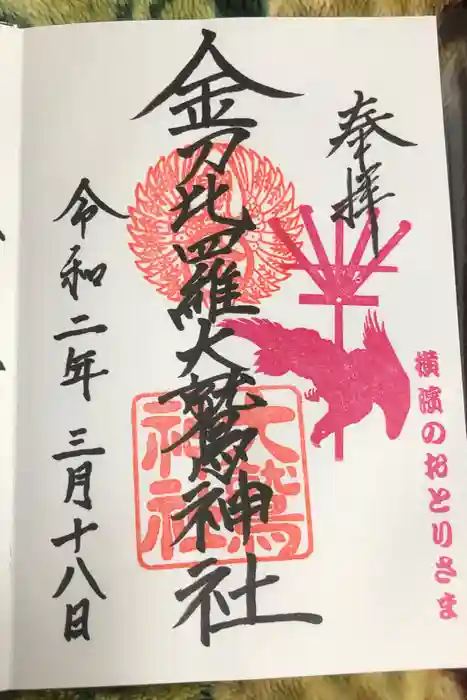 奉拝
金刀比羅大鷲神社
令和二年 三月十八日
横濱のおとりさま
大鷲
神社